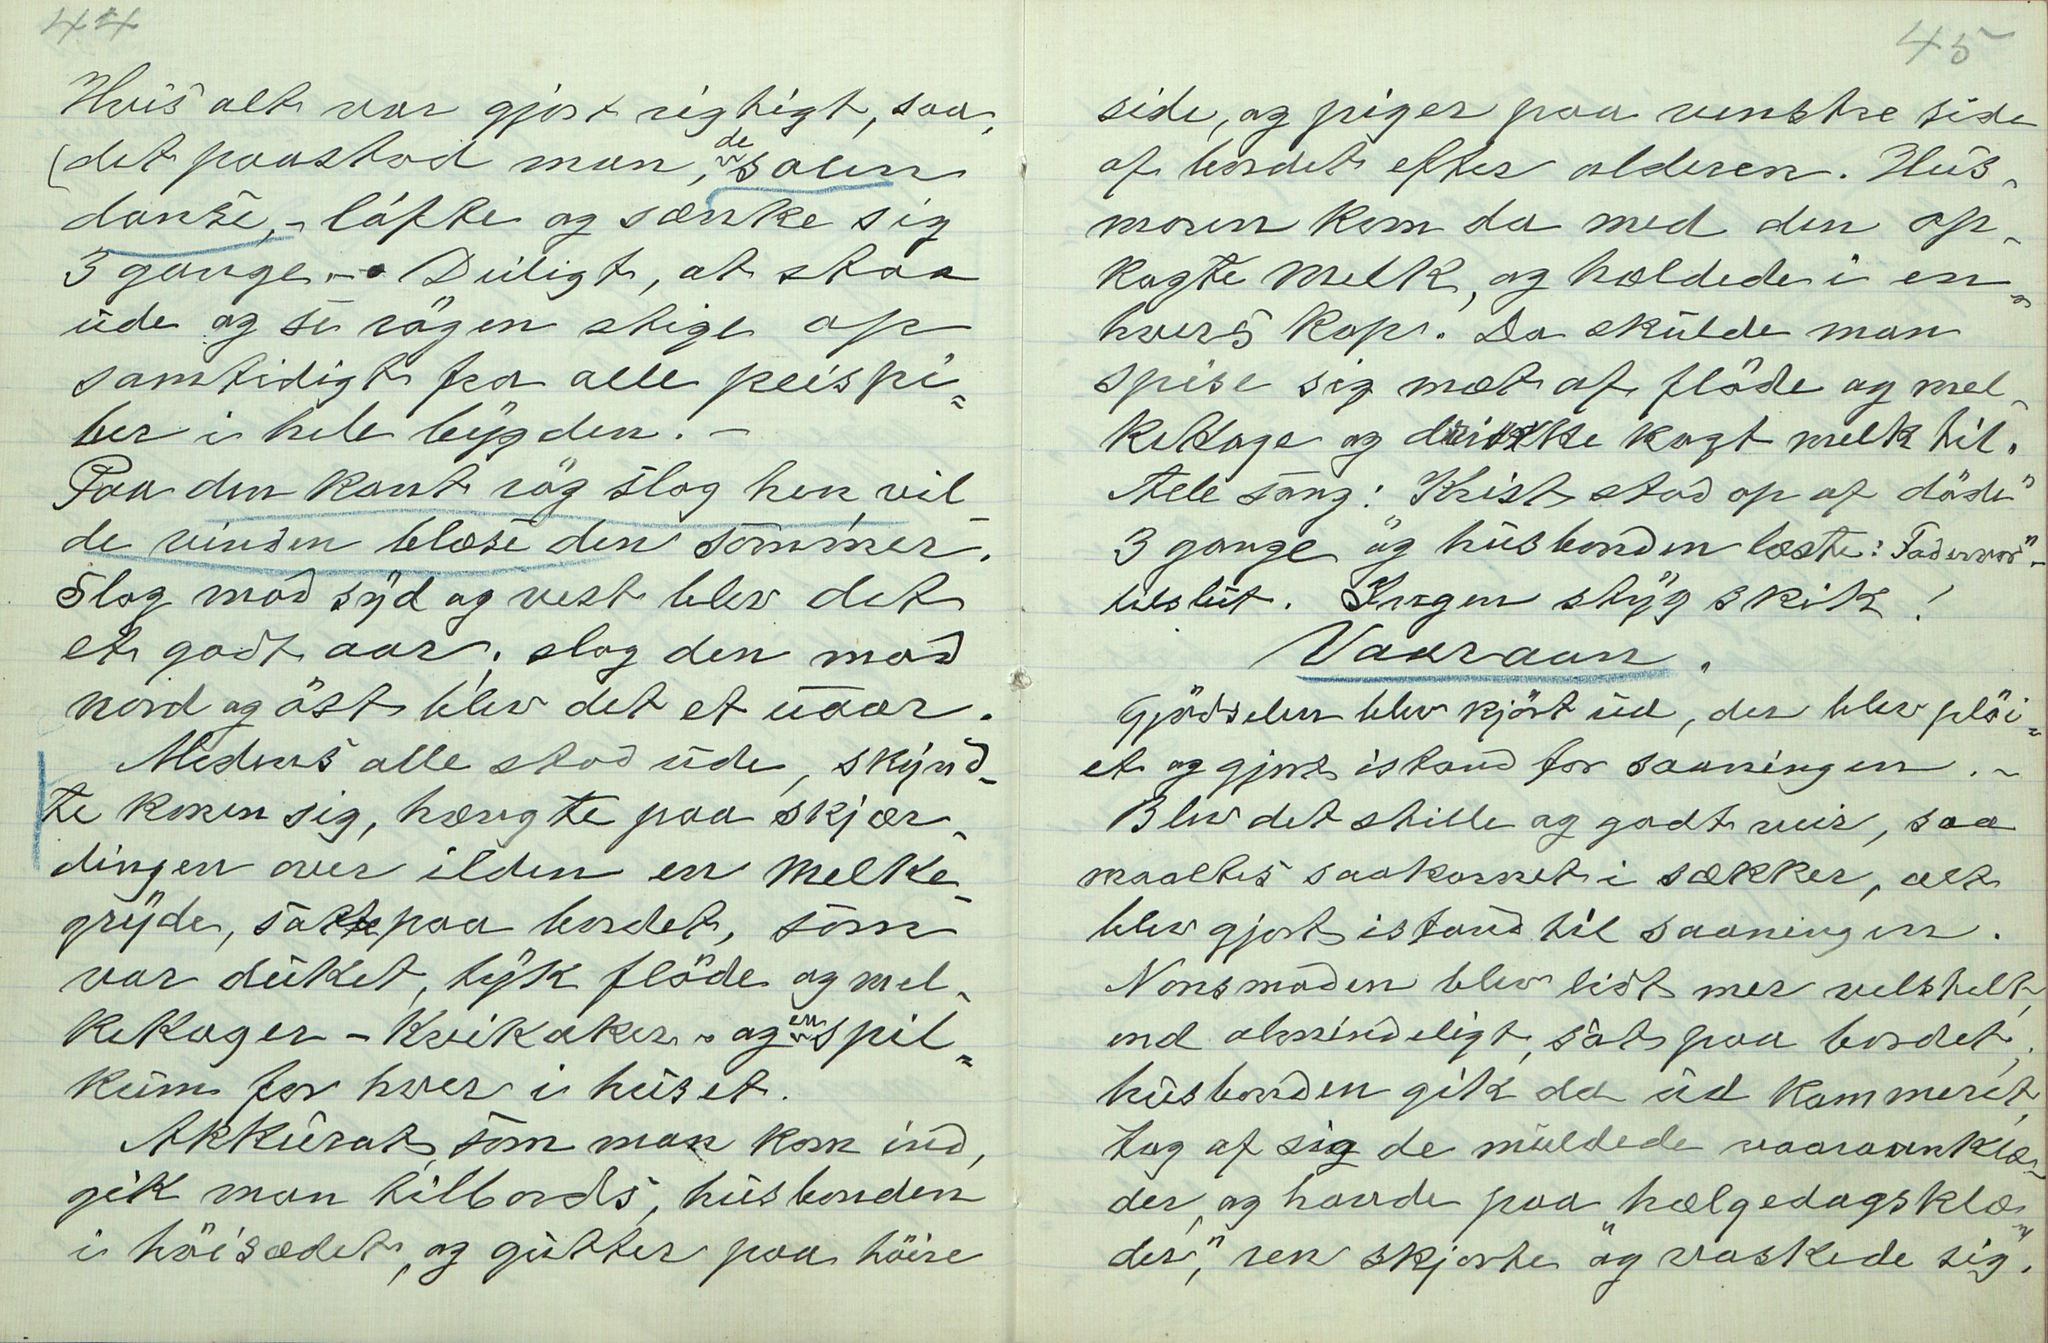 44
Hvis alt var gjort rigtigt, saa,
(det paastod man, de solen
danse, - löfte og sænke sig
3 gange. - Deiligt, at staa
ude og se rögen stige op
samtidigt fra alle peispi=
ber i hele bygden. -
Paa den kant rög slog hen, vil
de vinden blæse den sommer.
Slog mod syd og vest blev det
et godt aar; slog den mod
nord og öst blev det et uaar.
Medens alle stod ude, skynd-
te konen sig, hængte paa skjær-
dingen over ilden en melke-
gryde, satte paa bordet, som
var duket, tyk flöde og mel-
kekager - kvikaker - og en spil=
kum for hver i huset.
Akkurat som man kom ind,
gik man tilbords, husbonden
i höisædet, og gutter paa höire
45
side, og piger paa venstre side
af bordet efter alderen. Hus-
moren kom da med den op-
kogte melk, og hældede i en=
hvers kop. Da skulde man
spise sig mæt af flöde og mel-
kekage og drikke kogt melk til.
Alle sang: Krist stod op af döde"
3 gange og husbonden læste: Fadervor"-
tilslut. Ingen styg skik!
Vaaraan.
Gjödselen blev kjört ud, der blev plöi=
et og gjort istand for saaningen. -
Blev det stille og godt veir, saa
maaltes saakornet i sækker, alt
blev gjort istand til saaningen.
Nonsmaden blev lidt mer velstelt,
end almindeligt, sat paa bordet,
husbonden gik da ud kammerset,
tog af sig de muldede vaaraanklæ-
der, og havde paa hælgedagsklæ-
der," ren skjorte og vaskede sig".